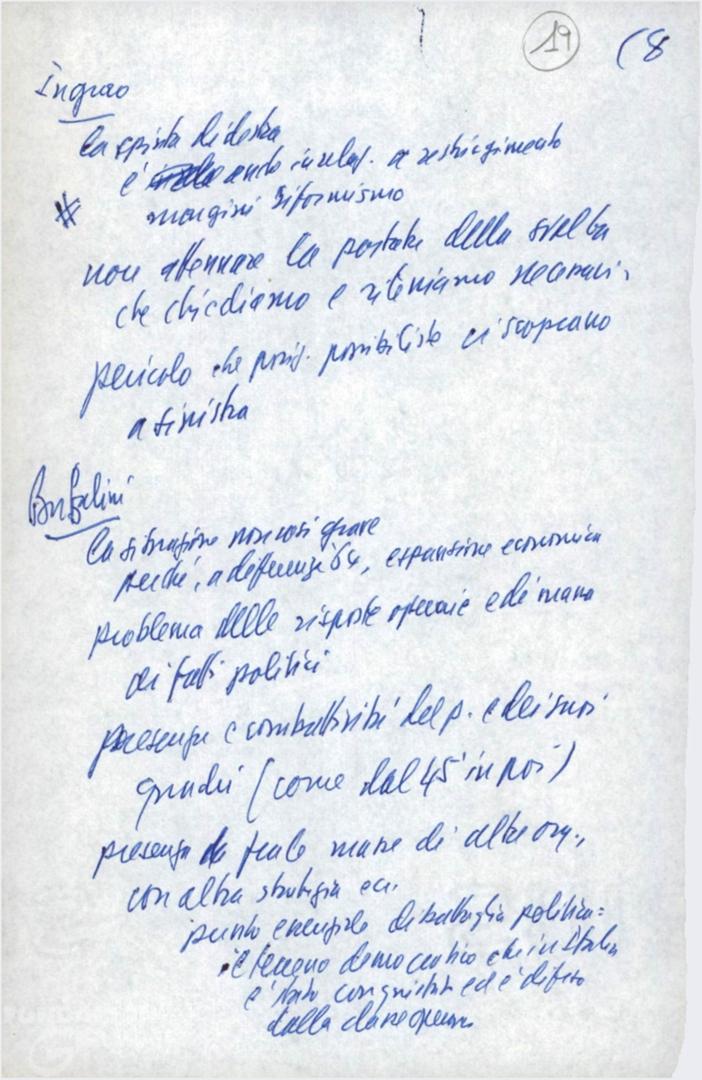 19 (8
Ingrao
la spinta di destra
è anche in relaz. a restringimento
margini riformismo
non attenuare la portata della svolta
che chiediamo e riteniamo necessari.
pericolo che posiz. possibiliste ci scoprano
a sinistra
Bufalini
la situazione non così grave
perché, a differenza '64, espansione economica
problema delle risposte operaie e di massa
ai fatti politici
presenza e combattività del p. e dei suoi
quadri (come dal 45 in poi)
presenza fra le masse di altre org.,
con altra strategia ecc.
punto essenziale di battaglia politica:
è terreno democratico che in Italia
è stato conquistato ed è difeso
dalla classe operaia